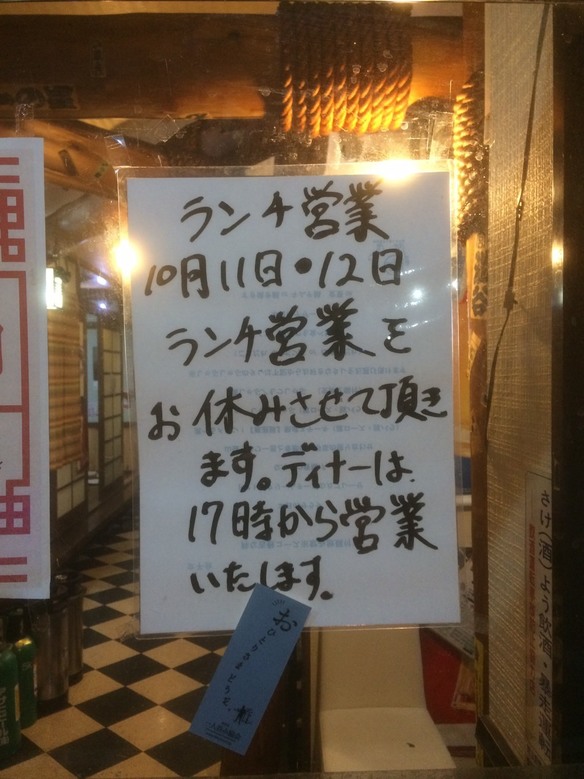 ランチ営業
10月11日・12日
ランチ営業を
お休みさせて頂き
ます。ディナーは
17時から営業
いたします。
さけ(酒)よう飲酒・